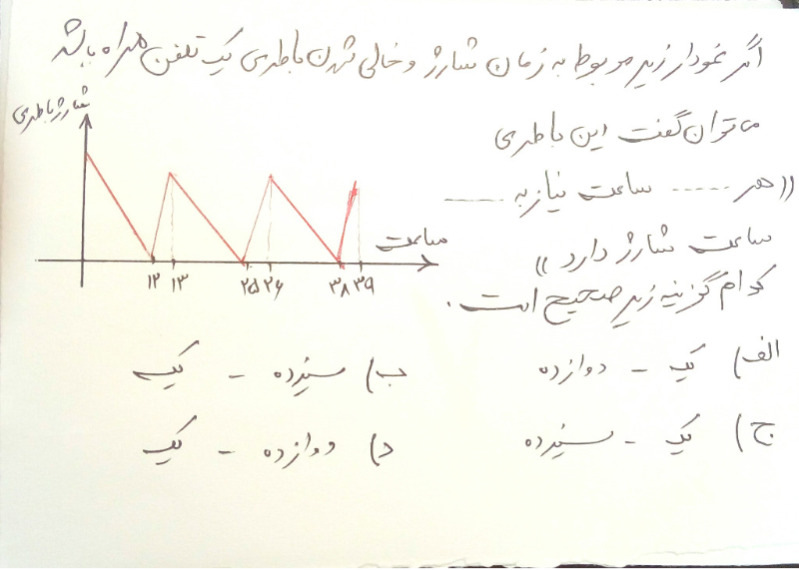 اگر نمودار زیر مربوط به زمان شارژ و خالی شدن باطری یک تلفن همراه باشد
می توان گفت این باطری
((هر ...... ساعت نیاز به ......
ساعت شارژ دارد))
کدام گزینه زیر صحیح است.
شارژ باطری
ساعت
۱۲ ۱۳ ۲۵ ۲۶ ۳۸ ۳۹
الف) یک - دوازده
ب) سیزده - یک
ج) یک - سیزده
د) دوازده - یک